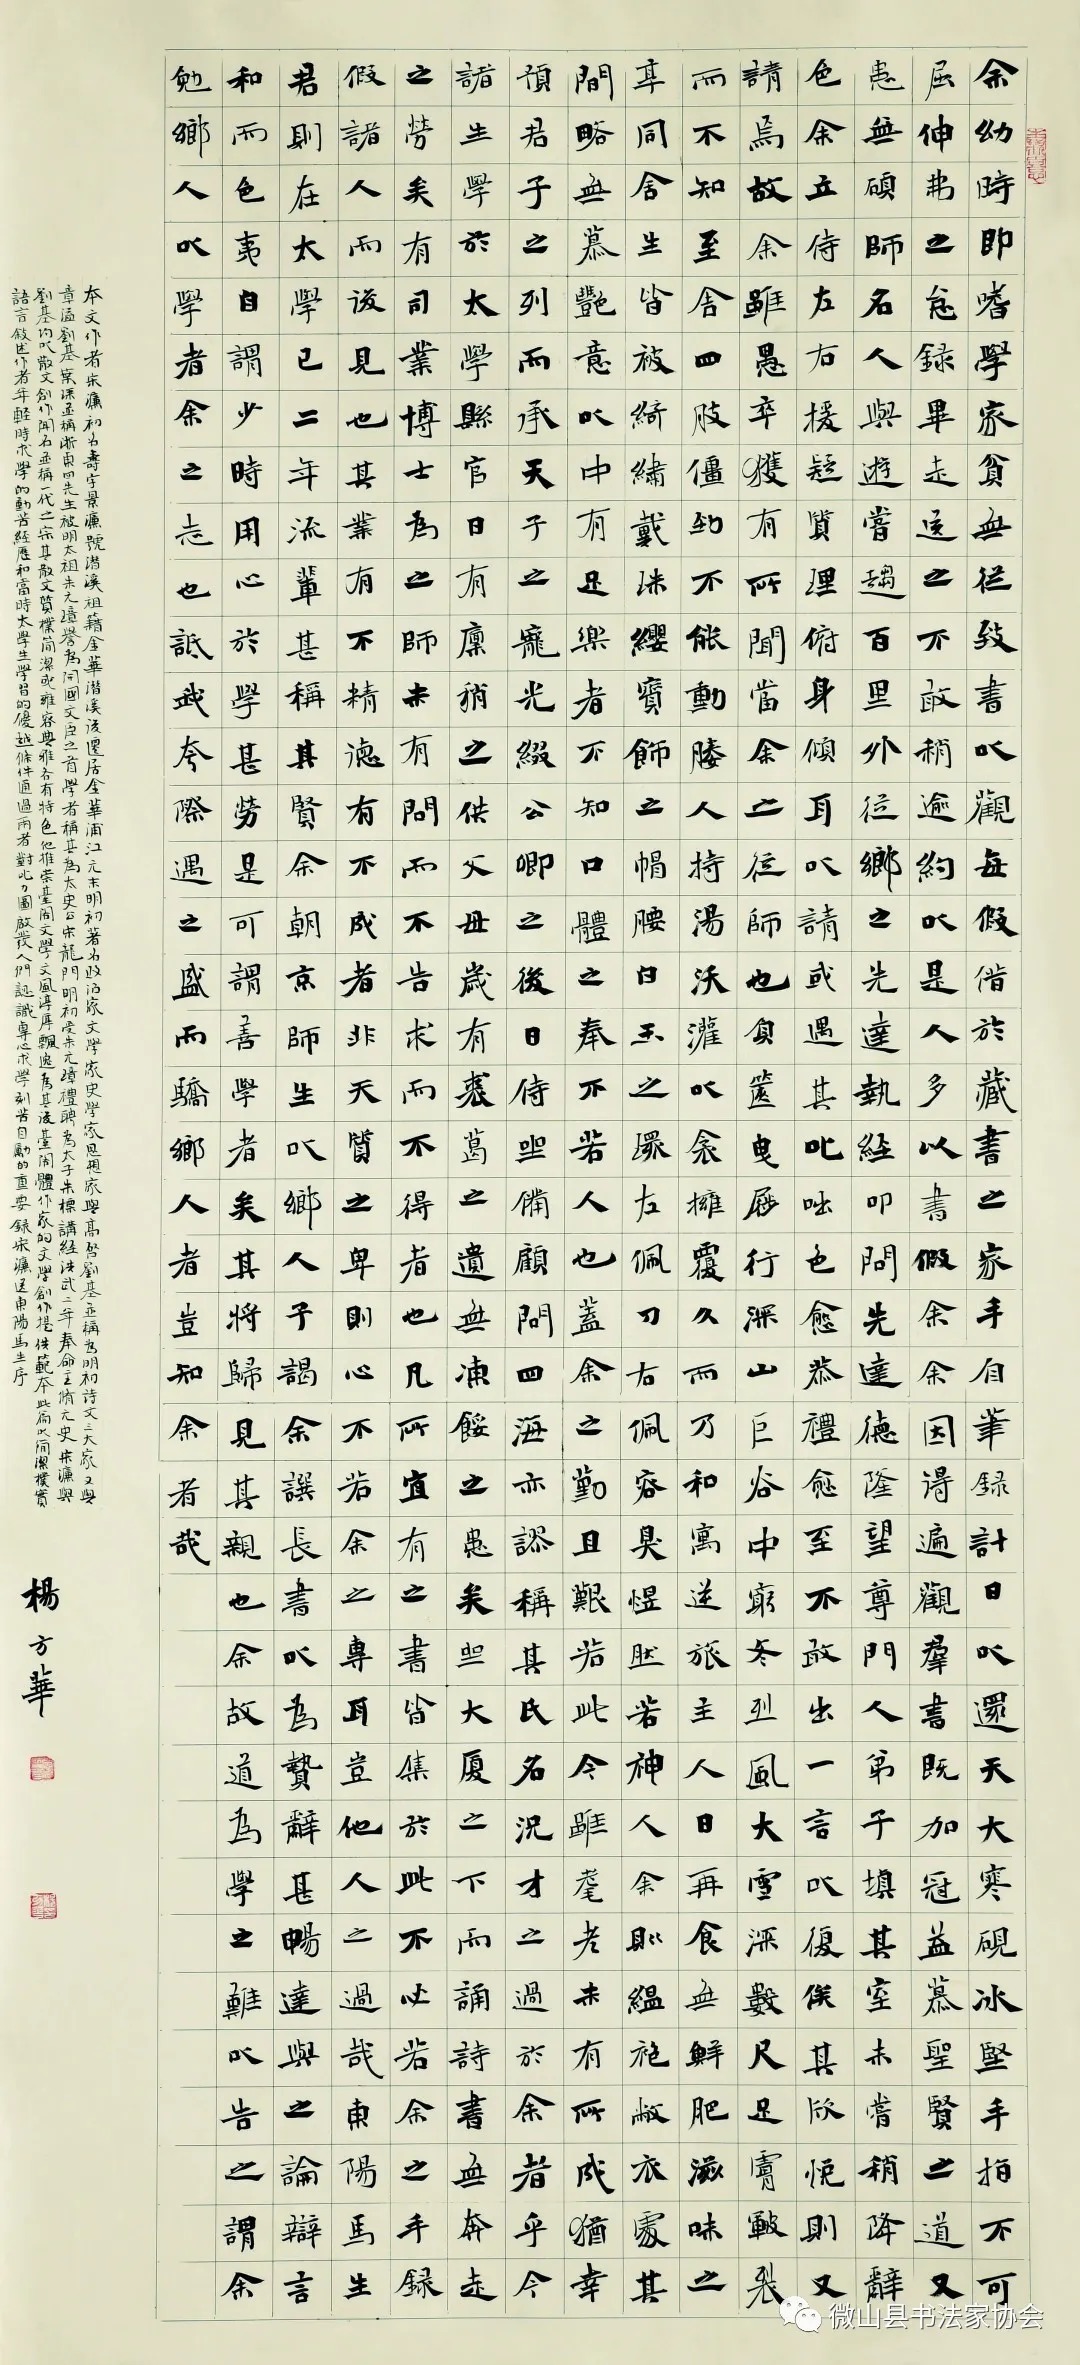 余幼時即嗜學家貧無從致書以觀每假借於藏書之家手自筆錄計日以還天大寒硯冰堅手指不可
屈伸弗之怠錄畢走送之不敢稍逾約以是人多以書假余余因得遍觀羣書既加冠益慕聖賢之道又
患無碩師名人與遊嘗趨百里外從鄉之先達執經叩問先達德隆望尊門人弟子填其室未嘗稍降辭
色余立侍左右援疑質理俯身傾耳以請或遇其叱咄色愈恭禮愈至不敢出一言以復俟其欣悅則又
請焉故余雖愚卒獲有所聞當余之從師也負篋曳屣行深山巨谷中窮冬烈風大雪深數尺足膚皸裂
而不知至舍四肢僵勁不能動媵人持湯沃灌以衾擁覆久而乃和寓逆旅主人日再食無鮮肥滋味之
享同舍生皆被綺繡戴珠纓寶飾之帽腰白玉之環左佩刀右佩容臭煜然若神人余則縕袍敝衣處其
間略無慕艷意以中有足樂者不知口體之奉不若人也蓋余之勤且艱若此今雖耄老未有所成猶幸
預君子之列而承天子之寵光綴公卿之後日侍坐備顧問四海亦謬稱其氏名況才之過於余者乎今
諸生學於太學縣官日有廩稍之供父母歲有裘葛之遺無凍餒之患矣坐大廈之下而誦詩書無奔走
之勞矣有司業博士為之師未有問而不告求而不得者也凡所宜有之書皆集於此不必若余之手錄
假諸人而後見也其業有不精德有不成者非天質之卑則心不若余之專耳豈他人之過哉東陽馬生
君則在太學已二年流輩甚稱其賢余朝京師生以鄉人子謁余譔長書以為贄辭甚暢達與之論辯言
和而色夷自謂少時用心於學甚勞是可謂善學者矣其將歸見其親也余故道為學之難以告之謂余
勉鄉人以學者余之志也詆我夸際遇之盛而驕鄉人者豈知余者哉
本文作者宋濂初名壽字景濂號潛溪祖籍金華潛溪後遷居金華浦江元末明初著名政治家文學家史學家思想家與高啓劉基並稱為明初詩文三大家又與
章溢劉基葉琛並稱浙東四先生被明太祖朱元璋譽為開國文臣之首學者稱其為太史公宋龍門明初受朱元璋禮聘為太子朱標講經洪武二年奉命主脩元史宋濂與
劉基均以散文創作聞名並稱一代之宗其散文質樸簡潔或雍容典雅各有特色他推崇臺閣文學文風淳厚飄逸為其後臺閣體作家的文學創作提供範本此篇以簡潔樸實
語言敍述作者年輕時求學的勤苦經歷和當時太學生學習的優越條件通過兩者對比力圖啟發人們認識專心求學刻苦自勵的重要 錄宋濂送東陽馬生序
楊方華
微山县书法家协会